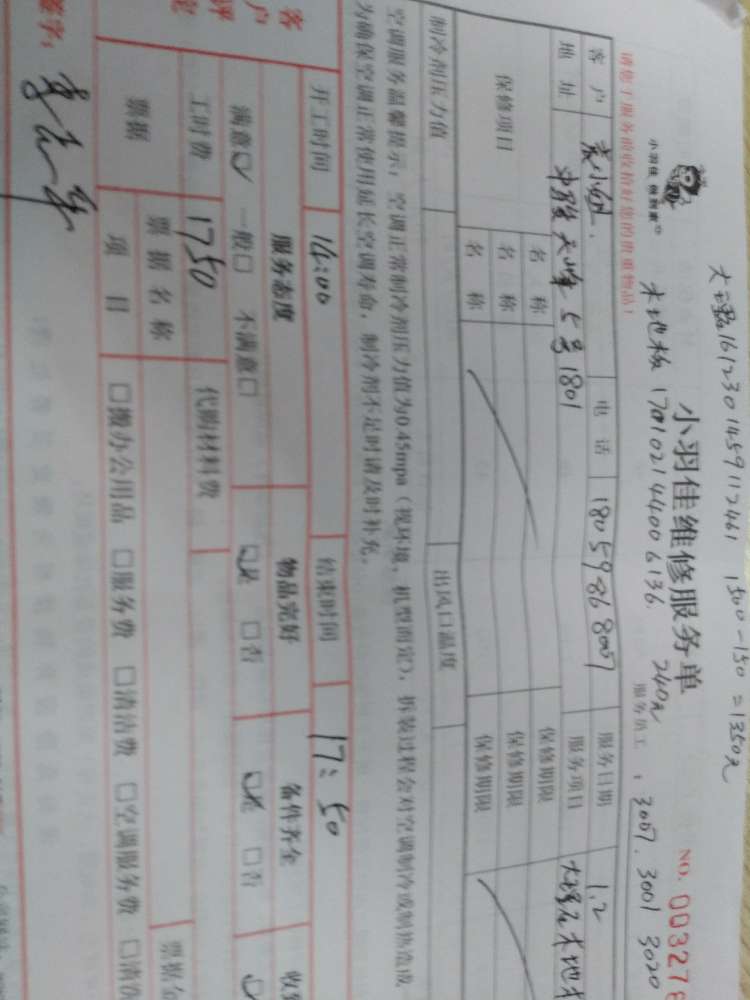 1500-150=1350元
木地板 170102144006136. 240元
小羽佳 做到家
小羽佳维修服务单
NO. 003278
请您于服务前收拾好您的贵重物品!
服务员工: 3007. 3001 3020
客户 电话 18059868007 服务日期 1.2
地址 5号1801 服务项目
保修项目 名称 保修期限
名称 保修期限
名称 保修期限
制冷剂压力值 出风口温度
空调服务温馨提示:空调正常制冷剂压力值为0.45mpa(视环境、机型而定),拆装过程会对空调制冷或制热造成
为确保空调正常使用延长空调寿命,制冷剂不足时请及时补充。
开工时间 16:00 结束时间 17:50
客户评定
服务态度 物品完好 备件齐全
满意☑ 一般□ 不满意□ ☑是 □否 ☑是 □否
工时费 1750 代购材料费
票据 票据名称
项目 □搬办公用品 □服务费 □清洁费 □空调服务费
签字: